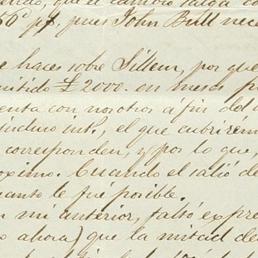 que el cambio salga co
60 p%, pues John Bull nece
e haces sobre Sillem, por que
mitido £ 2000. en meses p
enta con nosotros a fin del a
incluso int.s, el que cubrirém
corresponden, y por lo que,
oximo. Cuando el salió de
uanto le fué posible.
n mi anterior, faltó expre
o ahora) que la mitad de